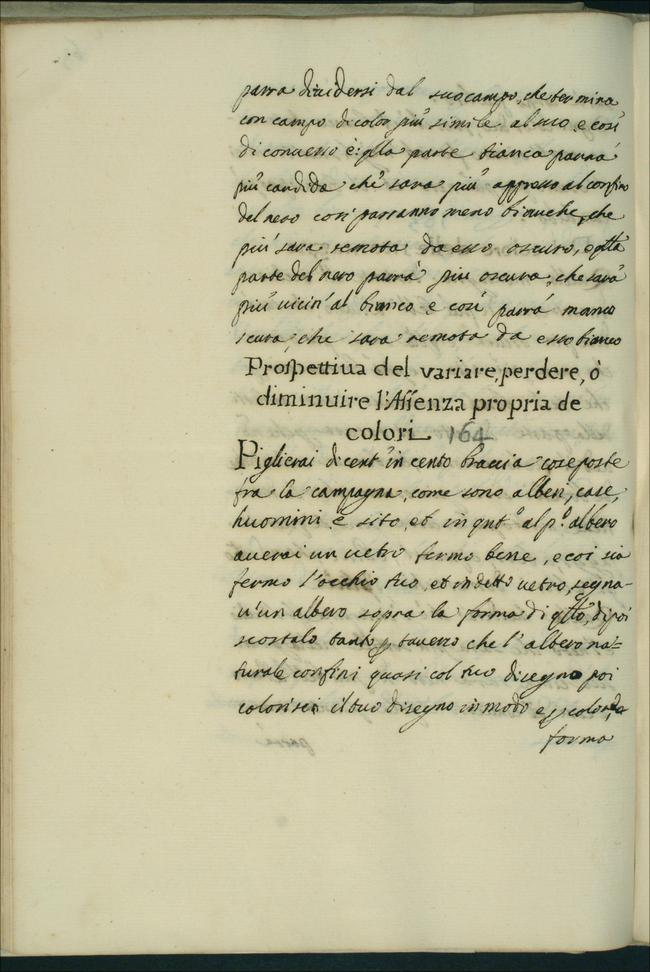 parra diuidersi dal suo campo, che termina
con campo di color piu' simile al suo e cosi'
di conuerso è: qlla parte bianca parrà
piu' candida che' sara piu' appresso al confino
del nero cosi' parranno meno bianche, che
piu' sara remota da esso oscuro, e qlla
parte del nero parrà piu oscura, che sarà
piu' uicin' al bianco e cosi parrà manco
scura, che sara remota da esso bianco
Prospettiua del variare, perdere, ò
diminuire l'Assenza propria de
colori 164
Piglierai di cent' in cento braccia cose poste
fra la campagna, come sono alberi, case,
huomini e sito, et in qnto al po albero
auerai un uetro fermo bene, e cosi sia
fermo l'occhio tuo, et in detto uetro, segna-
u'un albero sopra la forma di qllo, di poi
scostalo tanto p trauerso che l'albero na=
turale confini quasi col tuo disegno poi
colorisci il tuo disegno in modo e p colore,
forma